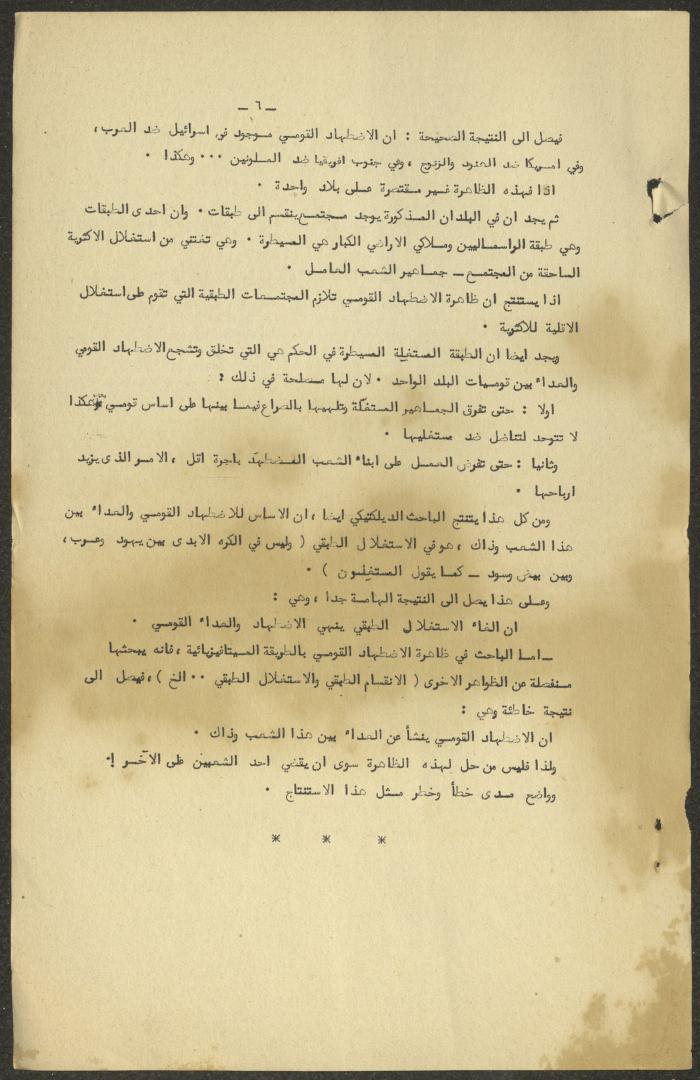 ـ ٦ ـ
فيصل الى النتيجة الصحيحة : ان الاضطهاد القومي موجود في اسرائيل ضد العرب ،
وفي امريكا ضد الهنود والزنوج ، وفي جنوب افريقيا ضد الملونين ٠٠٠ وهكذا ٠
اذا فهذه الظاهرة غير مقتصرة على بلاد واحدة ٠
ثم يجد ان في البلدان المذكورة يوجد مجتمع ينقسم الى طبقات ٠ وان احدى الطبقات
وهي طبقة الراسماليين وملاكي الاراضي الكبار هي المسيطرة ٠ وهي تغتني من استغلال الاكثرية
الساحقة من المجتمع ـ جماهير الشعب العامل ٠
اذا يستنتج ان ظاهرة الاضطهاد القومي تلازم المجتمعات الطبقية التي تقوم على استغلال
الاقلية للاكثرية ٠
ويجد ايضا ان الطبقة المستغِلة المسيطرة في الحكم هي التي تخلق وتشجع الاضطهاد القومي
والعداء بين قوميات البلد الواحد ٠ لان لها مصلحة في ذلك :
اولا : حتى تفرق الجماهير المستغَلة وتلهيها بالصراع فيما بينها على اساس قومي وهكذا
لا تتوحد لتناضل ضد مستغليها ٠
وثانيا : حتى تفرض العمل على ابناء الشعب المضطهد باجرة اقل ، الامر الذي يزيد
ارباحها ٠
ومن كل هذا يتنتج الباحث الديلكتيكي ايضا ، ان الاساس للاضطهاد القومي والعداء بين
هذا الشعب وذاك ، هو في الاستغلال الطبقي ( وليس في الكره الابدي بين يهود وعرب ،
وبين بيض وسود ـ كما يقول المستغِلون ) ٠
وعلى هذا يصل الى النتيجة الهامة جدا ، وهي :
ان الغاء الاستغلال الطبقي ينهي الاضطهاد والعداء القومي ٠
ـ اما الباحث في ظاهرة الاضطهاد القومي بالطريقة الميتافيزيائية ، فانه يبحثها
منفصلة عن الظواهر الاخرى ( الانقسام الطبقي والاستغلال الطبقي ٠٠ الخ ) ، فيصل الى
نتيجة خاطئة وهي :
ان الاضطهاد القومي ينشأ عن العداء بين هذا الشعب وذاك ٠
ولذا فليس من حل لهذه الظاهرة سوى ان يقضي احد الشعبين على الآخر !٠
وواضح مدى خطأ وخطر مثل هذا الاستنتاج ٠
* * *